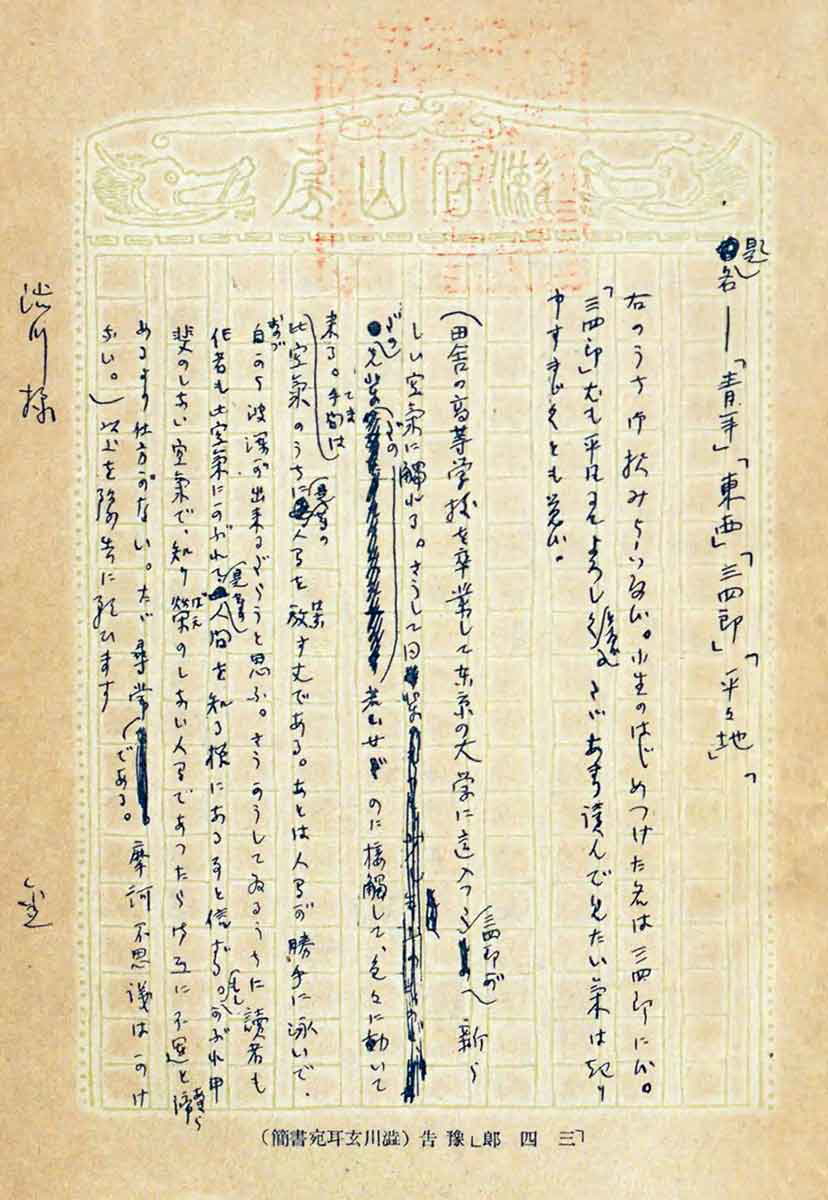 漱石山房
題名―「青年」「東西」「三四郎」「平々地」
右のうち御択み被下度候。小生のはじめつけた名は三四郎に候。
「三四郎」尤も平凡にてよろしくと存候。たゞあまり読んで見たい氣は起り
申すまじくとも覚候。
（田舎の高等学校を卒業して東京の大学に這入つた三四郎が新ら
しい空氣に觸れる。さうして同輩だの
先輩だの若い女だのに接觸して、色々に動いて
来る。手間は
此空氣のうちに是等の人間を放す丈である。あとは人間が勝手に泳いで、
自から波瀾が出来るだらうと思ふ。さうかうしてゐるうちに讀者も
作者も此空氣にかぶれて是等の人間を知る様になる事と信ずる。もしかぶれ甲
斐のしない空氣で、知り榮のしない人間であつたら御互に不運と諦
めるより仕方がない。たゞ尋常である。摩訶不思議はかけ
ない。）以上を豫告に願ひます
渋川様 金
「三四郎」豫告（澁川玄耳宛書簡）